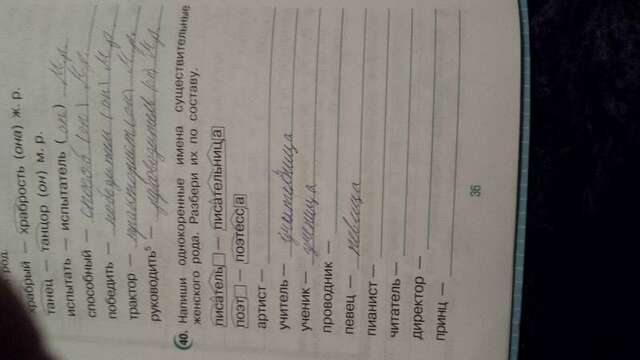 род.
храбрый — храбрость (она) ж. р.
танец — танцор (он) м. р.
испытать — испытатель (он) м.р.
способный — (он) м.р.
победить — победитель (он) м.р.
трактор — тракторист (он) м.р.
руководить⁵ — руководитель (он) м.р.
40. Напиши однокоренные имена существительные
женского рода. Разбери их по составу.
писатель — писательница
поэт — поэтесса
артист —
учитель — учительница
ученик — ученица
проводник —
певец — певица
пианист —
читатель —
директор —
принц —
36